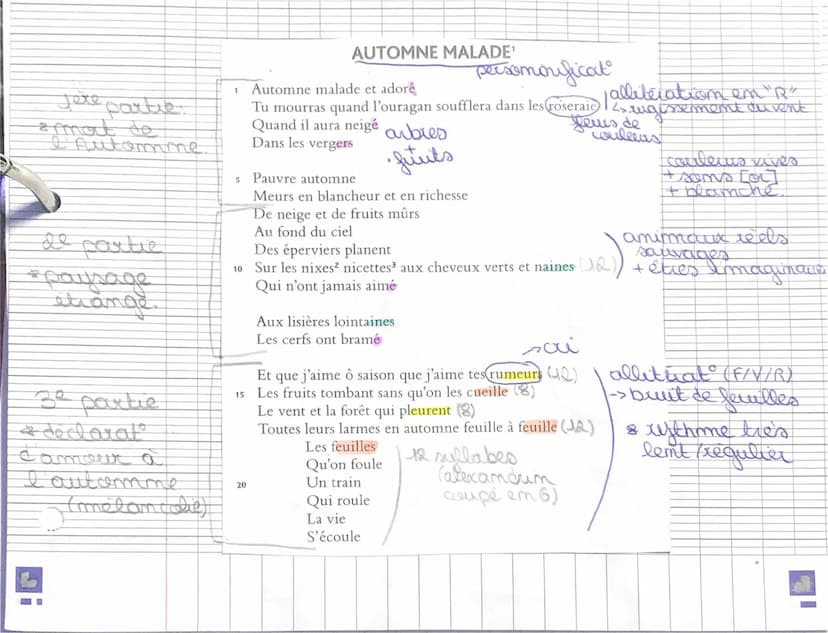 AUTOMNE MALADE¹
personnificat°
1 Automne malade et adoré
Tu mourras quand l'ouragan soufflera dans les roseraies
Quand il aura neigé
Dans les vergers
5 Pauvre automne
Meurs en blancheur et en richesse
De neige et de fruits mûrs
Au fond du ciel
Des éperviers planent
10 Sur les nixes² nicettes³ aux cheveux verts et naines (12)
Qui n'ont jamais aimé
Aux lisières lointaines
Les cerfs ont bramé
Et que j'aime ô saison que j'aime tes rumeurs (12)
15 Les fruits tombant sans qu'on les cueille (8)
Le vent et la forêt qui pleurent (8)
Toutes leurs larmes en automne feuille à feuille (12)
Les feuilles
Qu'on foule
Un train
20 Qui roule
La vie
S'écoule
1ère partie:
mort de
l'Automne
2e partie
paysage
étrange.
3e partie
déclarat°
d'amour à
l'automne
(mélancolie)
arbres
fruits
fleurs de
couleurs
allitération en "R"
↳ rugissement du vent
couleurs vives
+ sons [or]
+ blanche.
animaux réels
sauvages
+ êtres imaginaire
→ cri
allitérat° (F/V/R)
→ bruit de feuilles
rythme très
lent/régulier
12 syllabes
(alexandrin
coupé en 6)